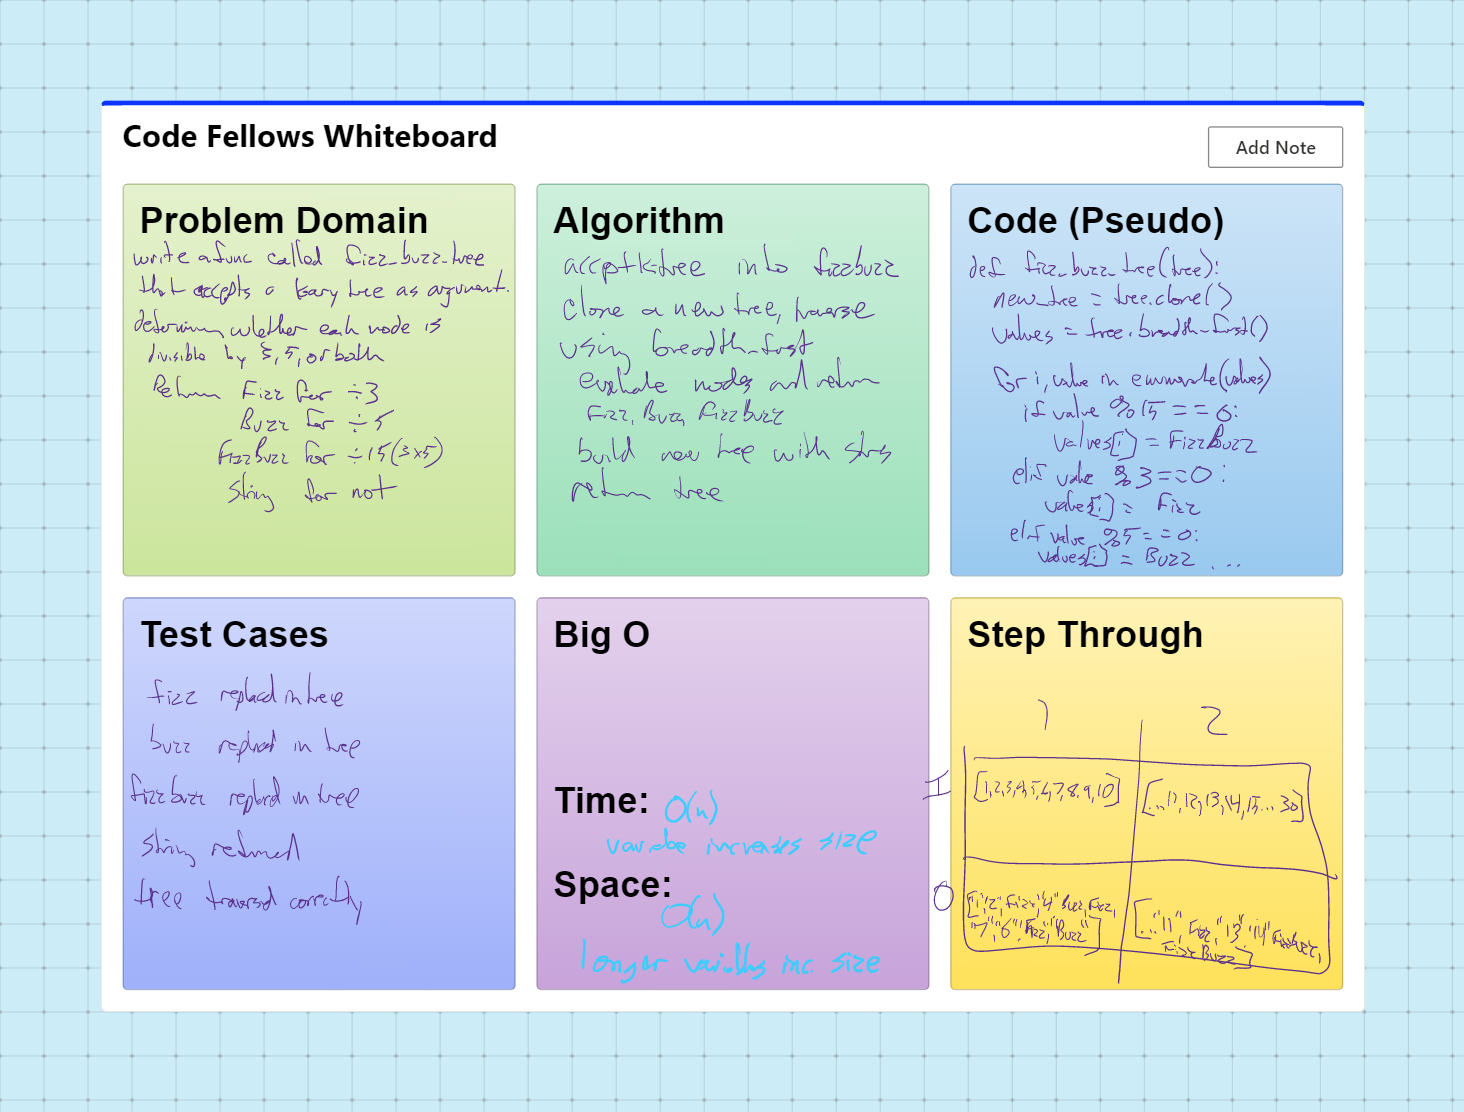 Code Fellows Whiteboard
Add Note
Problem Domain
write a func called fizz_buzz_tree
that accepts a k-ary tree as argument.
determining whether each node is
divisible by 3, 5, or both
Return Fizz for ÷3
Buzz for ÷5
FizzBuzz for ÷15 (3x5)
String for not
Algorithm
accept k-tree into fizzbuzz
clone a new tree, traverse
using breadth-first
evaluate nodes and return
Fizz, Buzz, FizzBuzz
build new tree with strs
return tree
Code (Pseudo)
def fizz_buzz_tree(tree):
new_tree = tree.clone()
values = tree.breadth-first()
for i, value in enumerate(values)
if value % 15 == 0:
values[i] = FizzBuzz
elif value % 3 == 0:
values[i] = Fizz
elif value % 5 == 0:
values[i] = Buzz ...
Test Cases
fizz replaced in tree
buzz replaced in tree
fizzbuzz replaced in tree
string returned
tree traversed correctly
Big O
Time: O(n)
variable increases size
Space:
O(n)
longer variables inc. size
Step Through
1 2
I [1,2,3,4,5,6,7,8,9,10] [...11,12,13,14,15...30]
O ["1","2",Fizz,"4" Buzz,Fizz, [..."11", Fizz, "13" "14" FizzBuzz,
Fizz, "Buzz"] Buzz]